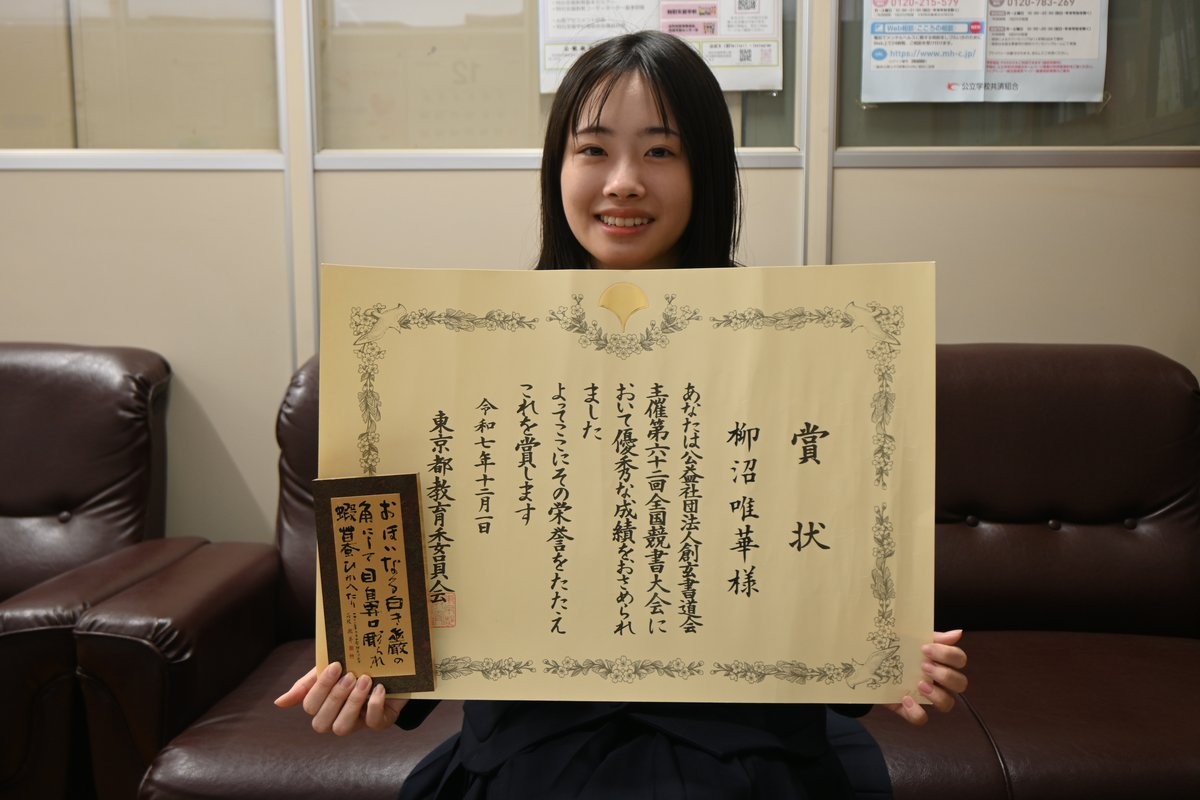 賞状
柳沼唯華様
あなたは公益社団法人創玄書道会
主催第六十二回全国競書大会に
おいて優秀な成績をおさめられ
ました
よってここにその栄誉をたたえ
これを賞します
令和七年十二月一日
東京都教育委員会
おほいなる白き巌の
角にして目鼻口彫られ
0120-215-579
Web相談(こころの相談)
https://www.mh-c.jp/
公立学校共済組合
0120-783-269
12